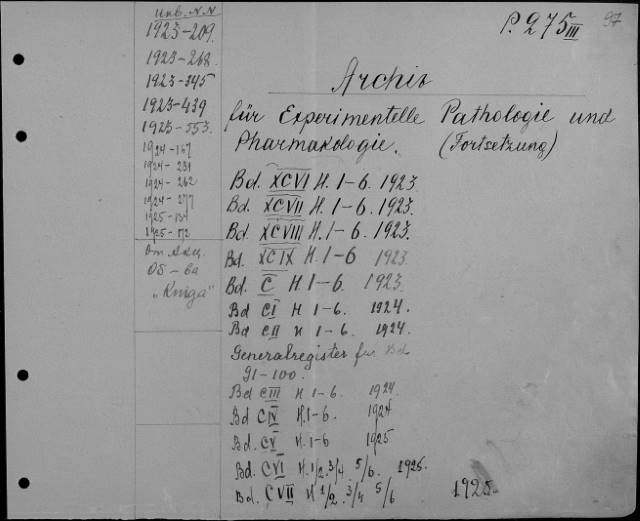 инв. NN
1923-209.
1923-268.
1923-345
1923-439
1923-553.
1924-167
1924-231
1924-262
1924-277
1925-134
1925-172
От. Акц.
Об-ва
"Kniga"
P. 275 III
97
Archiv
für Experimentelle Pathologie und
Pharmakologie. (Fortsetzung)
Bd. XCVI H. 1-6. 1923
Bd. XCVII H. 1-6. 1923.
Bd. XCVIII H. 1-6. 1923.
Bd. XCIX H. 1-6 1923.
Bd. C H. 1-6. 1923.
Bd CI H 1-6. 1924.
Bd CII H 1-6. 1924.
Generalregister für Bd
91-100.
Bd CIII H. 1-6. 1924.
Bd CIV H. 1-6. 1924
Bd CV H. 1-6 1925
Bd. CVI H. 1/2. 3/4 5/6. 1925.
Bd. CVII H 1/2. 3/4 5/6 1925.